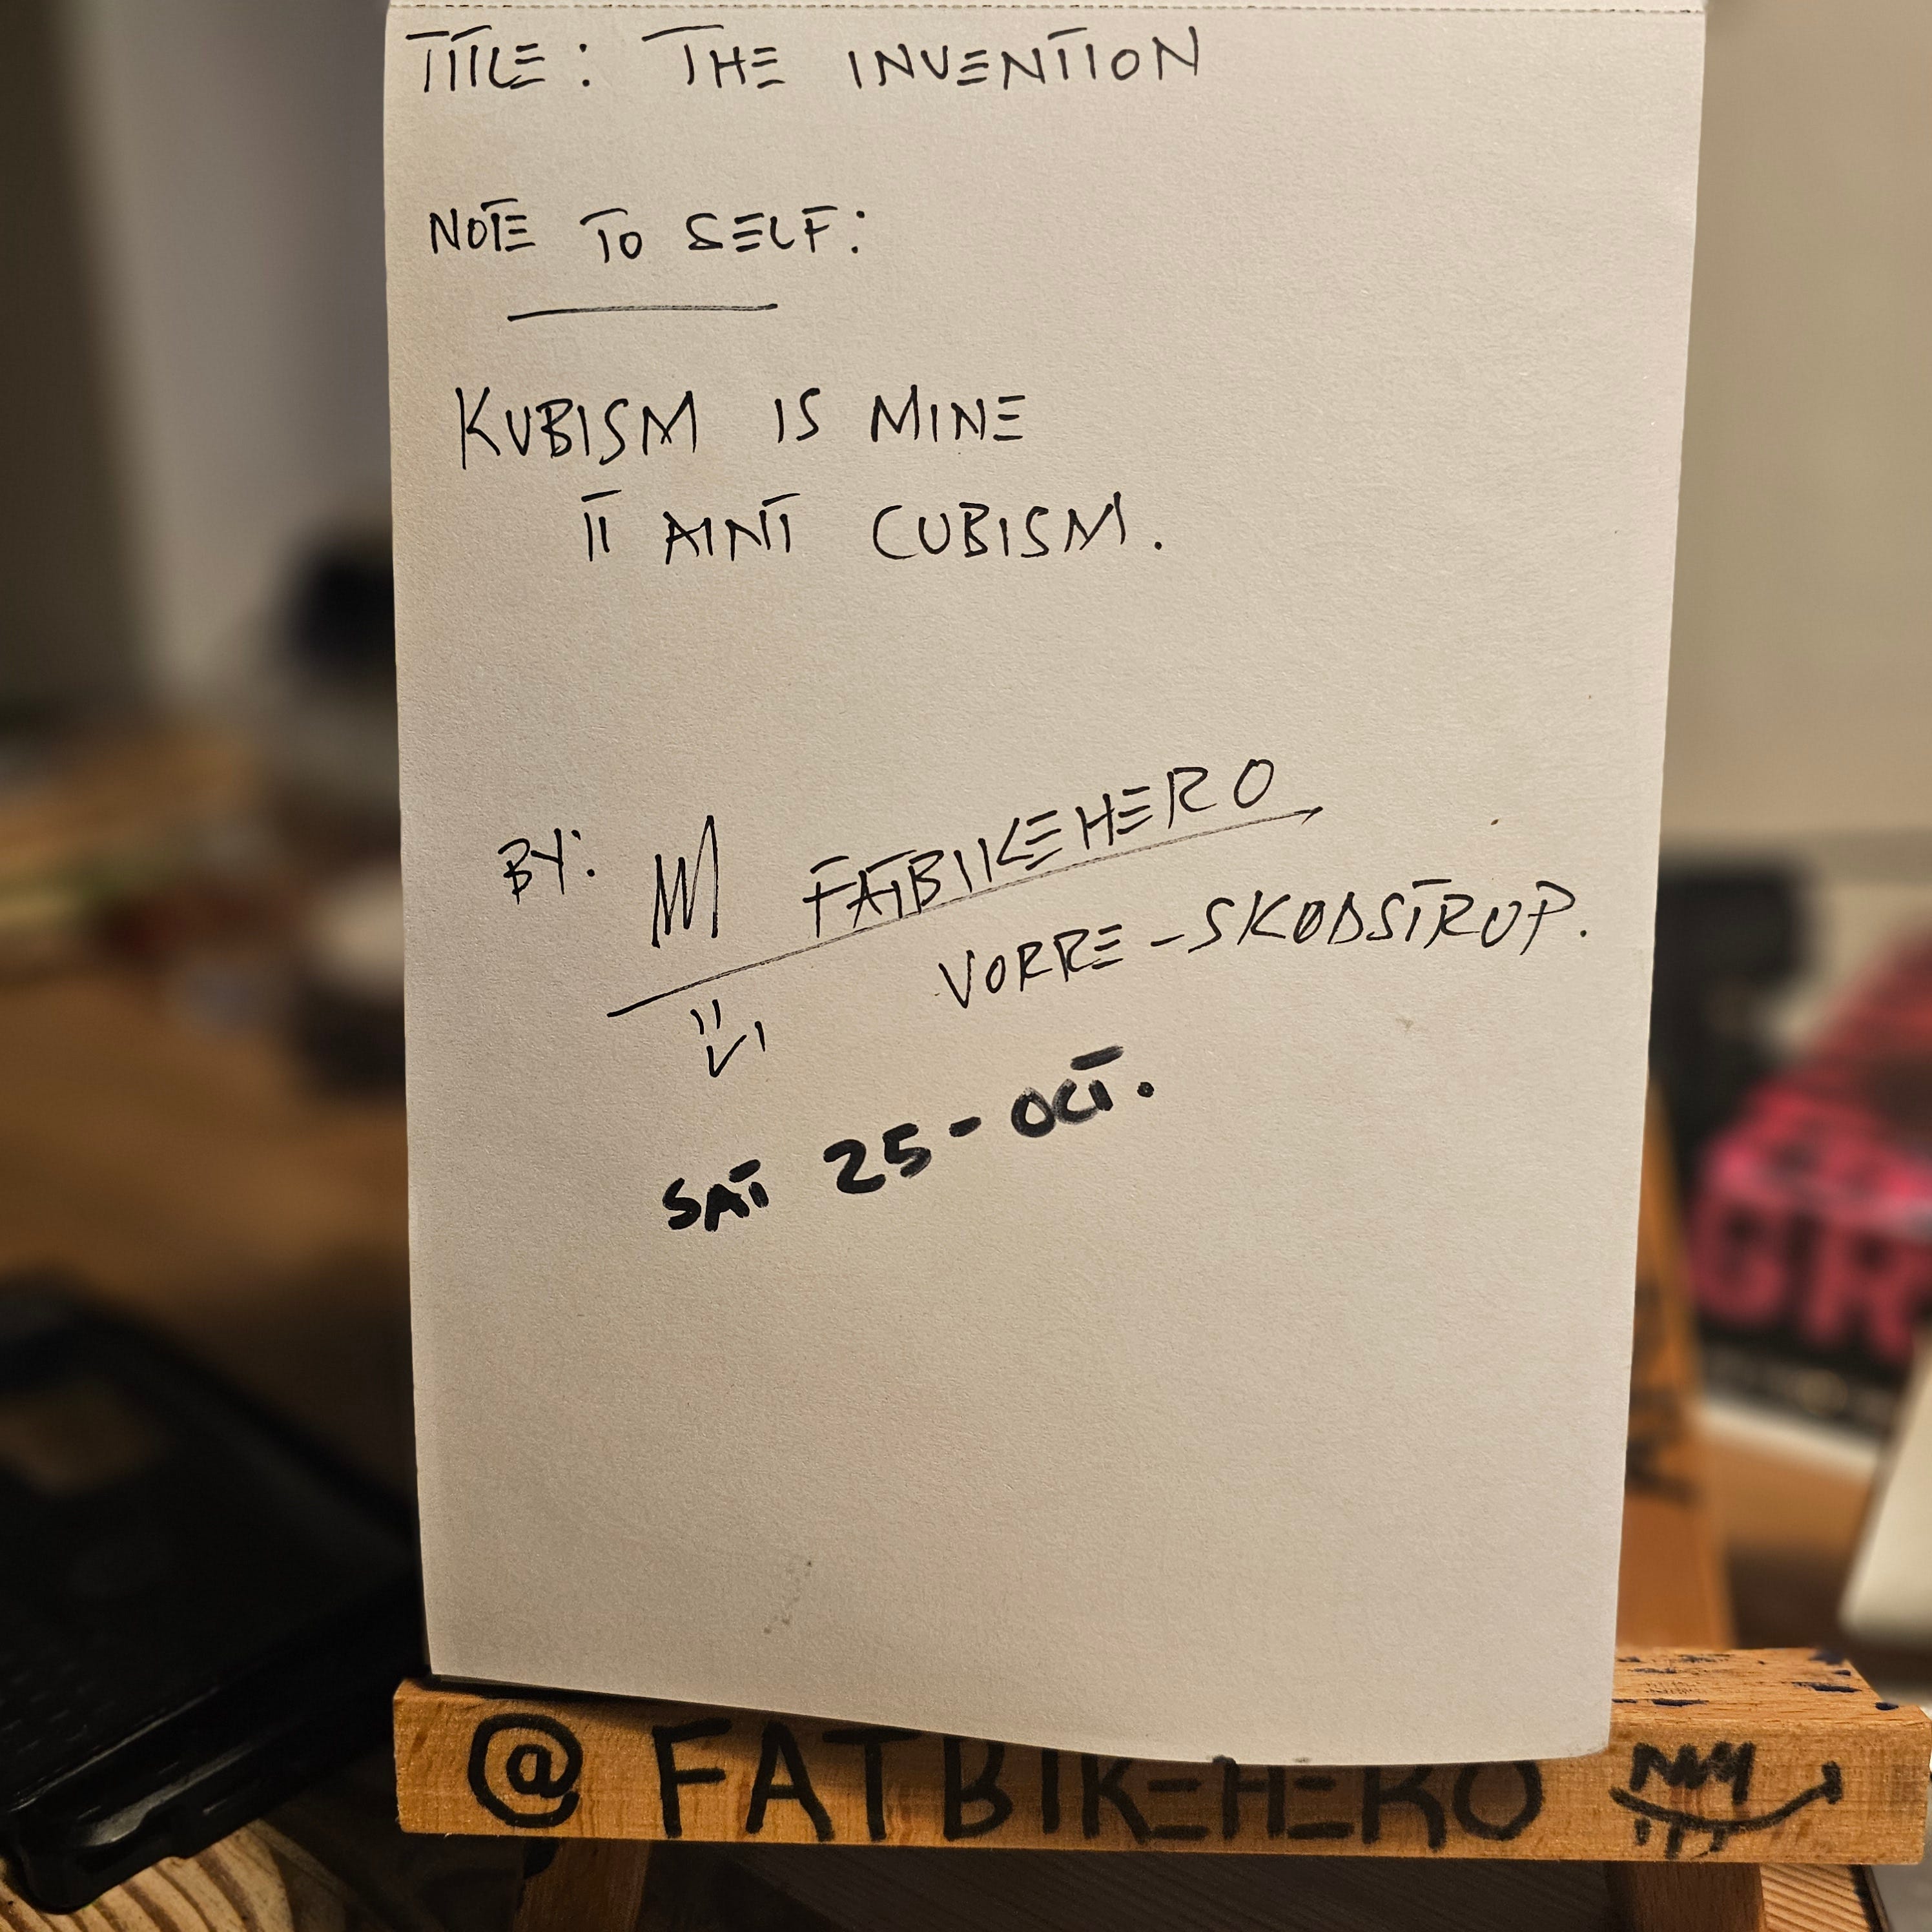 TITLE: THE INVENTION
NOTE TO SELF:
KUBISM IS MINE
IT AINT CUBISM.
BY: FATBIKEHERO
VORRE-SKODSTRUP.
SAT 25-OCT.
@FATBIKEHERO